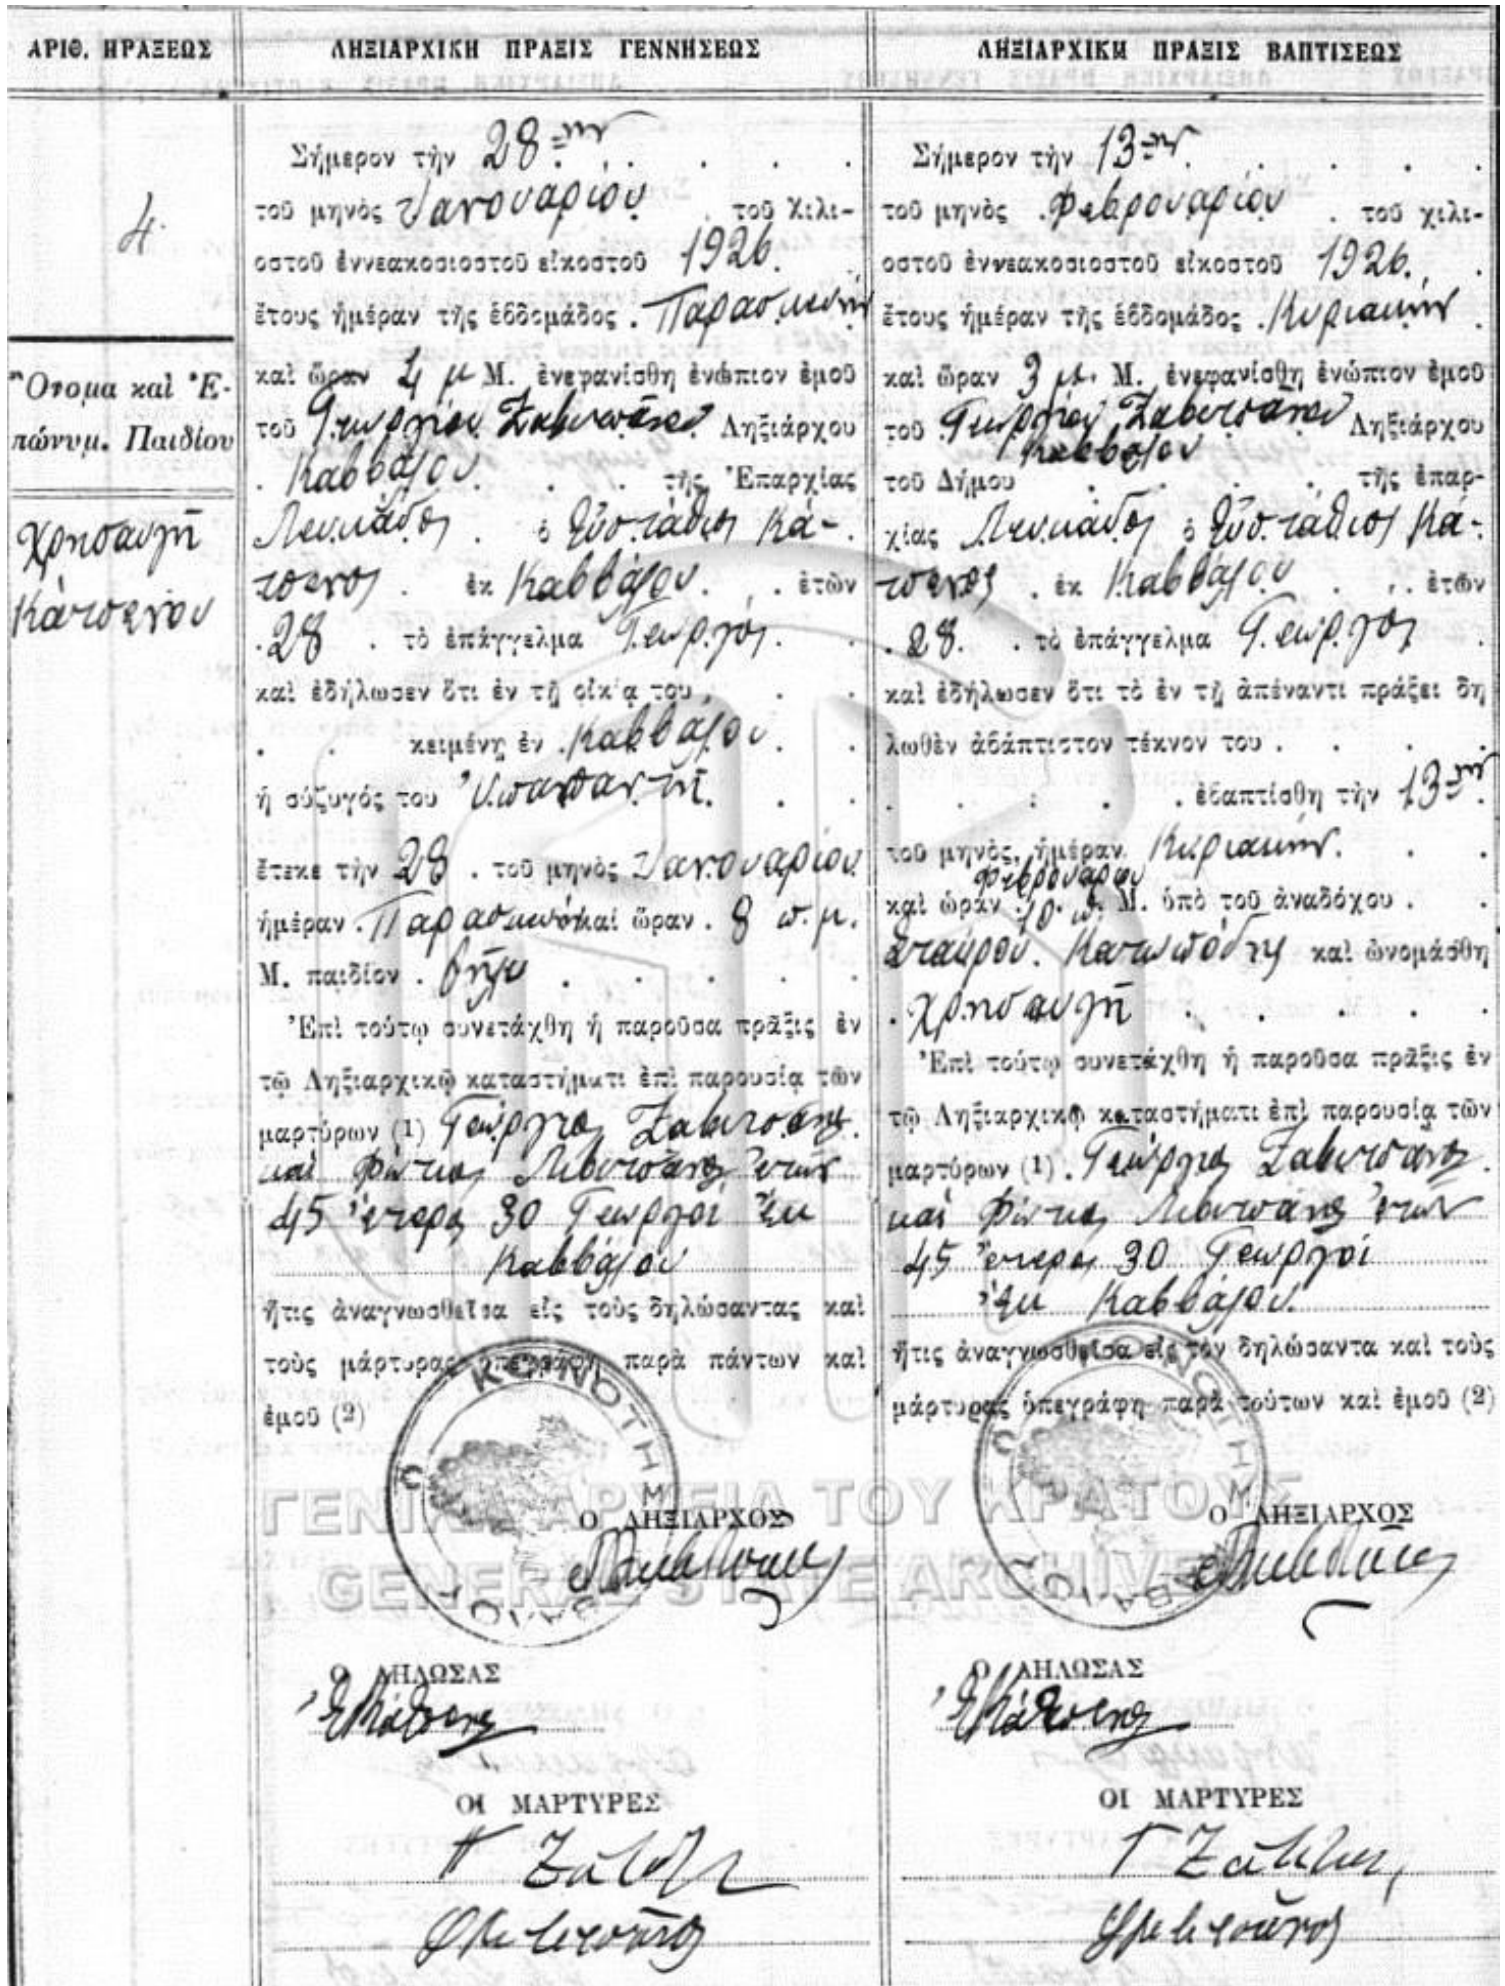 ΑΡΙΘ. ΠΡΑΞΕΩΣ
4
Ὄνομα καὶ Ἐ-
πώνυμ. Παιδίου
Χρησαυγῆ
Κάτσενου
ΛΗΞΙΑΡΧΙΚΗ ΠΡΑΞΙΣ ΓΕΝΝΗΣΕΩΣ
Σήμερον τὴν 28ην
τοῦ μηνὸς Ἰανουαρίου τοῦ χιλι-
οστοῦ ἐννεακοσιοστοῦ εἰκοστοῦ 1926.
ἔτους ἡμέραν τῆς ἑβδομάδος Παρασκευὴν
καὶ ὥραν 4 μ Μ. ἐνεφανίσθη ἐνώπιον ἐμοῦ
τοῦ Γεωργίου Ζαβιτσάνου Ληξιάρχου
Καββάλου τῆς Ἐπαρχίας
Λευκάδος ὁ Εὐστάθιος Κά-
τσενος ἐκ Καββάλου ἐτῶν
28 τὸ ἐπάγγελμα Γεωργός
καὶ ἐδήλωσεν ὅτι ἐν τῇ οἰκίᾳ του
κειμένῃ ἐν Καββάλου
ἡ σύζυγός του Ὑπαπαντὴ
ἔτεκε τὴν 28 τοῦ μηνὸς Ἰανουαρίου
ἡμέραν Παρασκευὴ καὶ ὥραν 8 π.μ.
Μ. παιδίον θῆλυ
Ἐπὶ τούτῳ συνετάχθη ἡ παροῦσα πρᾶξις ἐν
τῷ Ληξιαρχικῷ καταστήματι ἐπὶ παρουσίᾳ τῶν
μαρτύρων (1) Γεώργιος Ζαβιτσάνος
καὶ Φώτιος Λιβιτσάνος ἐτῶν
45 ἕτερος 30 Γεωργοί ἐκ
Καββάλου
ἥτις ἀναγνωσθεῖσα εἰς τοὺς δηλώσαντας καὶ
τοὺς μάρτυρας ὑπεγράφη παρὰ πάντων καὶ
ἐμοῦ (2)
ΚΟΙΝΟΤΗΣ
Ο ΛΗΞΙΑΡΧΟΣ
Ο ΔΗΛΩΣΑΣ
Ε Κάτσενος
ΟΙ ΜΑΡΤΥΡΕΣ
ΛΗΞΙΑΡΧΙΚΗ ΠΡΑΞΙΣ ΒΑΠΤΙΣΕΩΣ
Σήμερον τὴν 13ην
τοῦ μηνὸς Φεβρουαρίου τοῦ χιλι-
οστοῦ ἐννεακοσιοστοῦ εἰκοστοῦ 1926.
ἔτους ἡμέραν τῆς ἑβδομάδος Κυριακὴν
καὶ ὥραν 3 μ. Μ. ἐνεφανίσθη ἐνώπιον ἐμοῦ
τοῦ Γεωργίου Ζαβιτσάνου Ληξιάρχου
τοῦ Δήμου Καββάλου τῆς ἐπαρ-
χίας Λευκάδος ὁ Εὐστάθιος Κά-
τσενος ἐκ Καββάλου ἐτῶν
28. τὸ ἐπάγγελμα Γεωργός
καὶ ἐδήλωσεν ὅτι τὸ ἐν τῇ ἀπέναντι πράξει δη
λωθὲν ἀβάπτιστον τέκνον του
ἐβαπτίσθη τὴν 13ην
τοῦ μηνὸς, ἡμέραν Κυριακὴν.
Φεβρουαρίου
καὶ ὥραν 10 π. Μ. ὑπὸ τοῦ ἀναδόχου
Σταύρου Κατωπόδης καὶ ὠνομάσθη
Χρησαυγῆ
Ἐπὶ τούτῳ συνετάχθη ἡ παροῦσα πρᾶξις ἐν
τῷ Ληξιαρχικῷ καταστήματι ἐπὶ παρουσίᾳ τῶν
μαρτύρων (1) Γεώργιος Ζαβιτσάνος
καὶ Φώτιος Λιβιτσάνος ἐτῶν
45 ἕτερος 30 Γεωργοί
ἐκ Καββάλου
ἥτις ἀναγνωσθεῖσα εἰς τὸν δηλώσαντα καὶ τοὺς
μάρτυρας ὑπεγράφη παρὰ τούτων καὶ ἐμοῦ (2)
Ο ΛΗΞΙΑΡΧΟΣ
Ο ΔΗΛΩΣΑΣ
Ε Κάτσενος
ΟΙ ΜΑΡΤΥΡΕΣ
ΓΕΝΙΚΑ ΑΡΧΕΙΑ ΤΟΥ ΚΡΑΤΟΥΣ
GENERAL STATE ARCHIVES